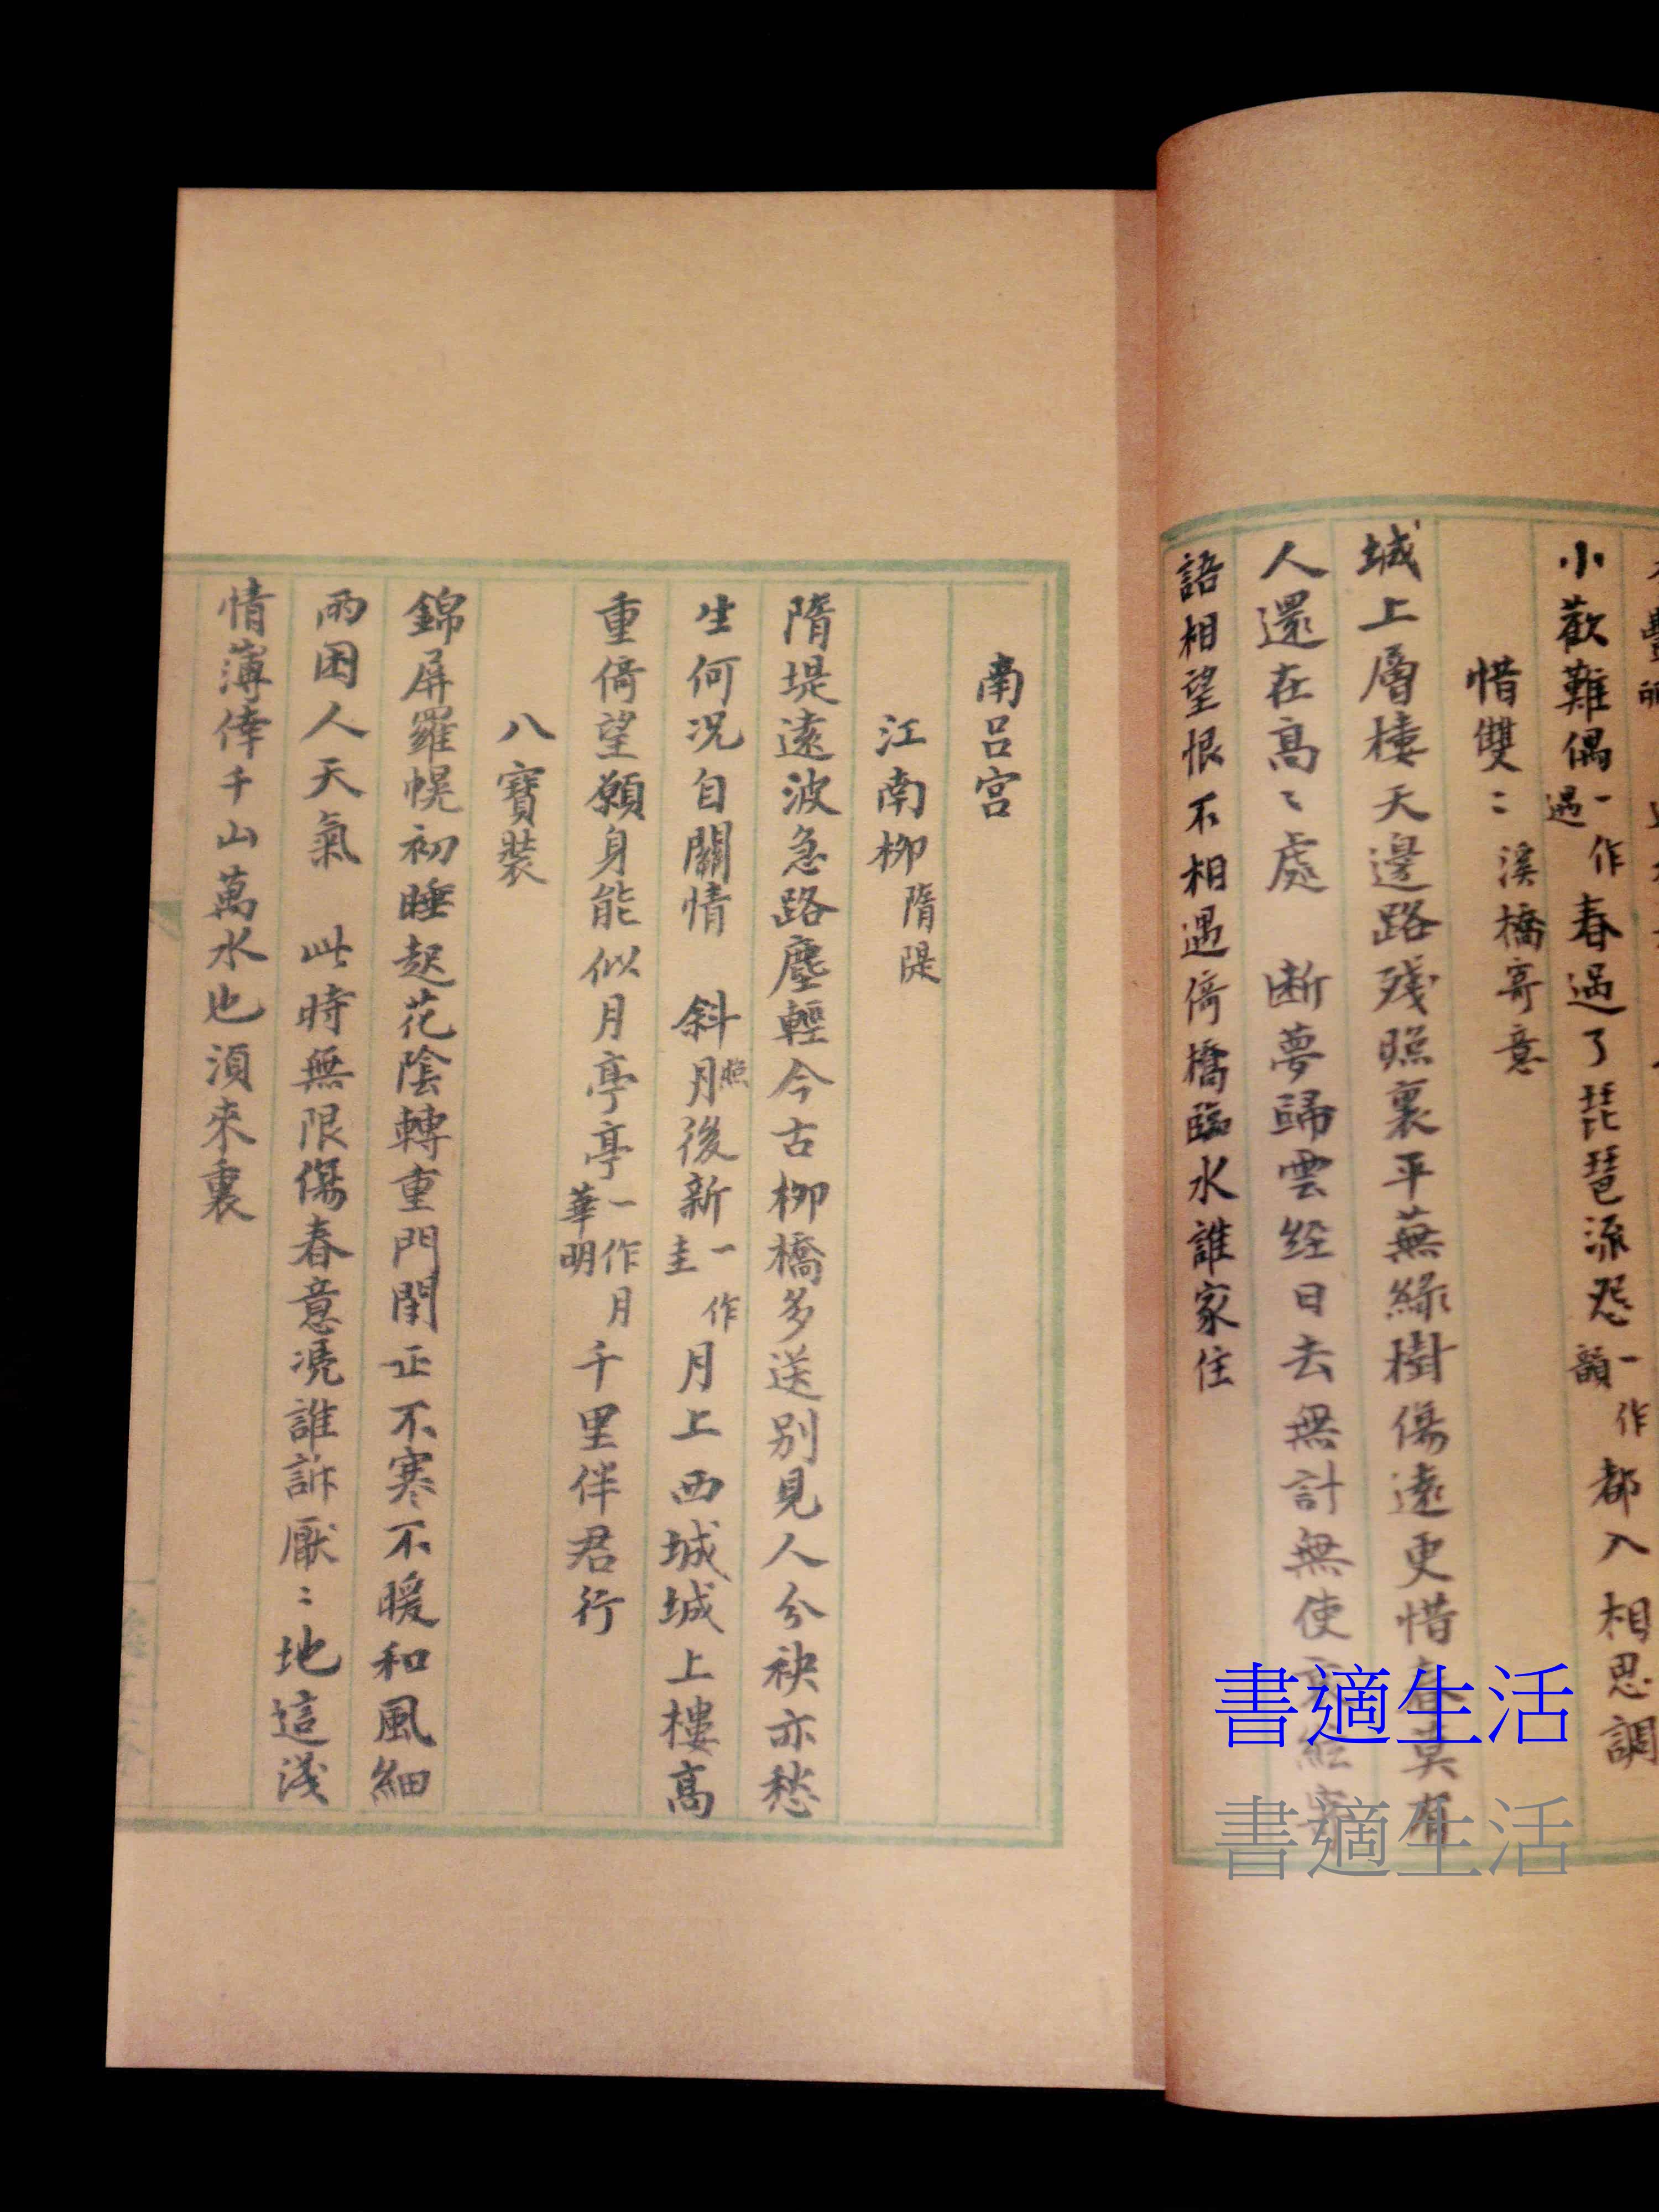 小歡難偶一作遇春過了琵琶流怨一作韻都入相思調
惜雙〻溪橋寄意
城上層樓天邊路殘照裏平蕪綠樹傷遠更惜春莫有
人還在高〻處 断夢歸雲经日去無計無使
語相望恨不相遇倚橋臨水誰家住
南呂宮
江南柳隋隄
隋堤遠波急路塵輕今古柳橋多送别見人分袂亦愁
生何况自關情 斜月照後新一作圭月上西城城上樓高
重倚望願身能似月亭亭一作月華明千里伴君行
八寶裝
錦屏羅幌初睡起花陰轉重門閉正不寒不暖和風細
雨困人天氣 此時無限傷春意凴誰訴厭〻地這淺
情薄倖千山萬水也須來裏
書適生活
書適生活